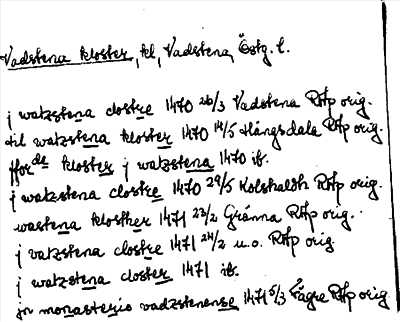 Vadstena kloster, kl, Vadstena, Östg. l.
j watzstena clostre 1470 26/3 Vadstena RAp orig.
til watzstena kloster 1470 14/5 Hångsdala RAp orig.
ffor de kloster j watzstena 1470 ib.
j watzstena clostre 1470 29/5 Kolshalth RAp orig.
wastena klosther 1471 23/2 Gränna RAp orig.
j vatzstena clostre 1471 24/2 u.o. RAp orig.
j watzstena closter 1471 ib.
jn monasterio vadzstenense 1471 5/3 Fågre RAp orig